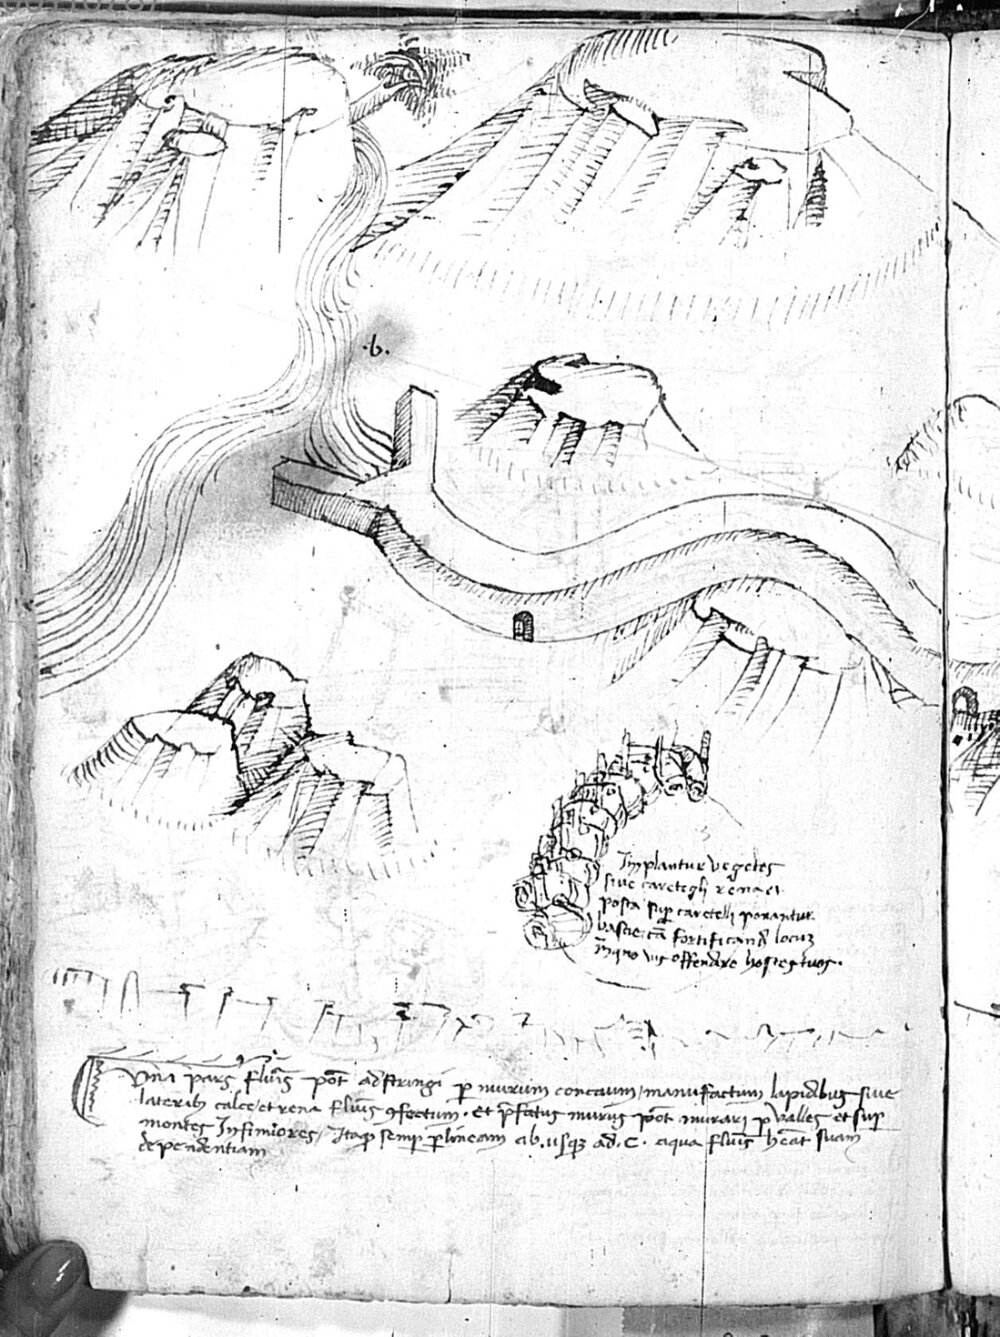 .b.
Implantur vegetes
sive caretegli rena et
posta sup caretelli ponantur
causa fortificandi locuz
in quo vis offendere hostes tuos.
Una pars fluīs pōt adstringi p murum concavum, manufactum lapidibus sive
lateribus calce, et rena fluīs confectum. et pfatus murus pōt murari p valles et sup
montes Infimiores, Itaqz semp p lineam ab. usqz ad. c. aqua fluīs heat suam
dependentiam